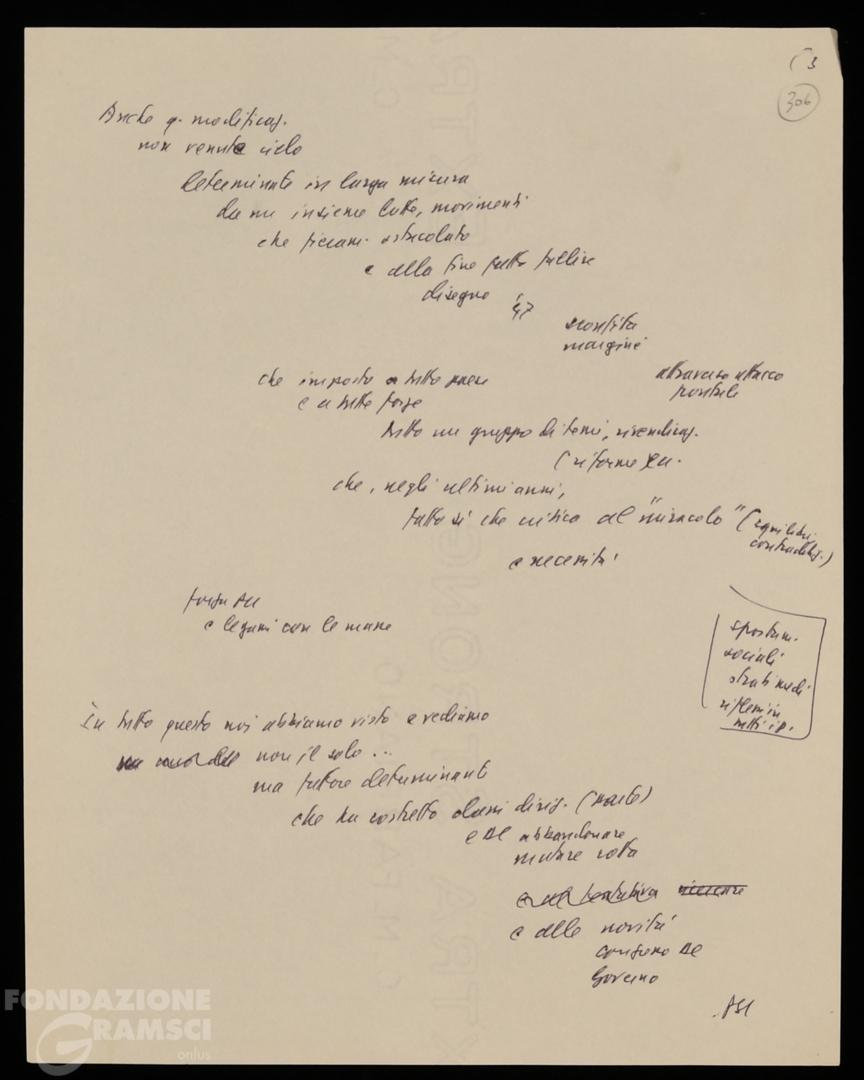 ( 3
306
Anche q. modificaz.
non venute cielo
determinate in larga misura
da un insieme lotte, movimenti
che ostacolato
e alla fine fatto fallire
disegno '47
sconfitta
margine
attraverso attacco
frontale
che imposto a tutto paese
e a tutte forze
tutto un gruppo di temi, rivendicaz.
(riforme
che, negli ultimi anni,
fatto sì che critica al "miracolo" (squilibri,
contraddiz.)
e necessità
forza PCI
e legami con le masse
spostam.
sociali
strati medi
riflessi in
tutti i p.
In tutto questo noi abbiamo visto e vediamo
non il solo...
ma fattore determinante
che ha costretto alcuni dirig. (parte)
e DC abbandonare
mutare rotta
e alle novità
congresso DC
Governo
PSI
FONDAZIONE
GRAMSCI
onlus